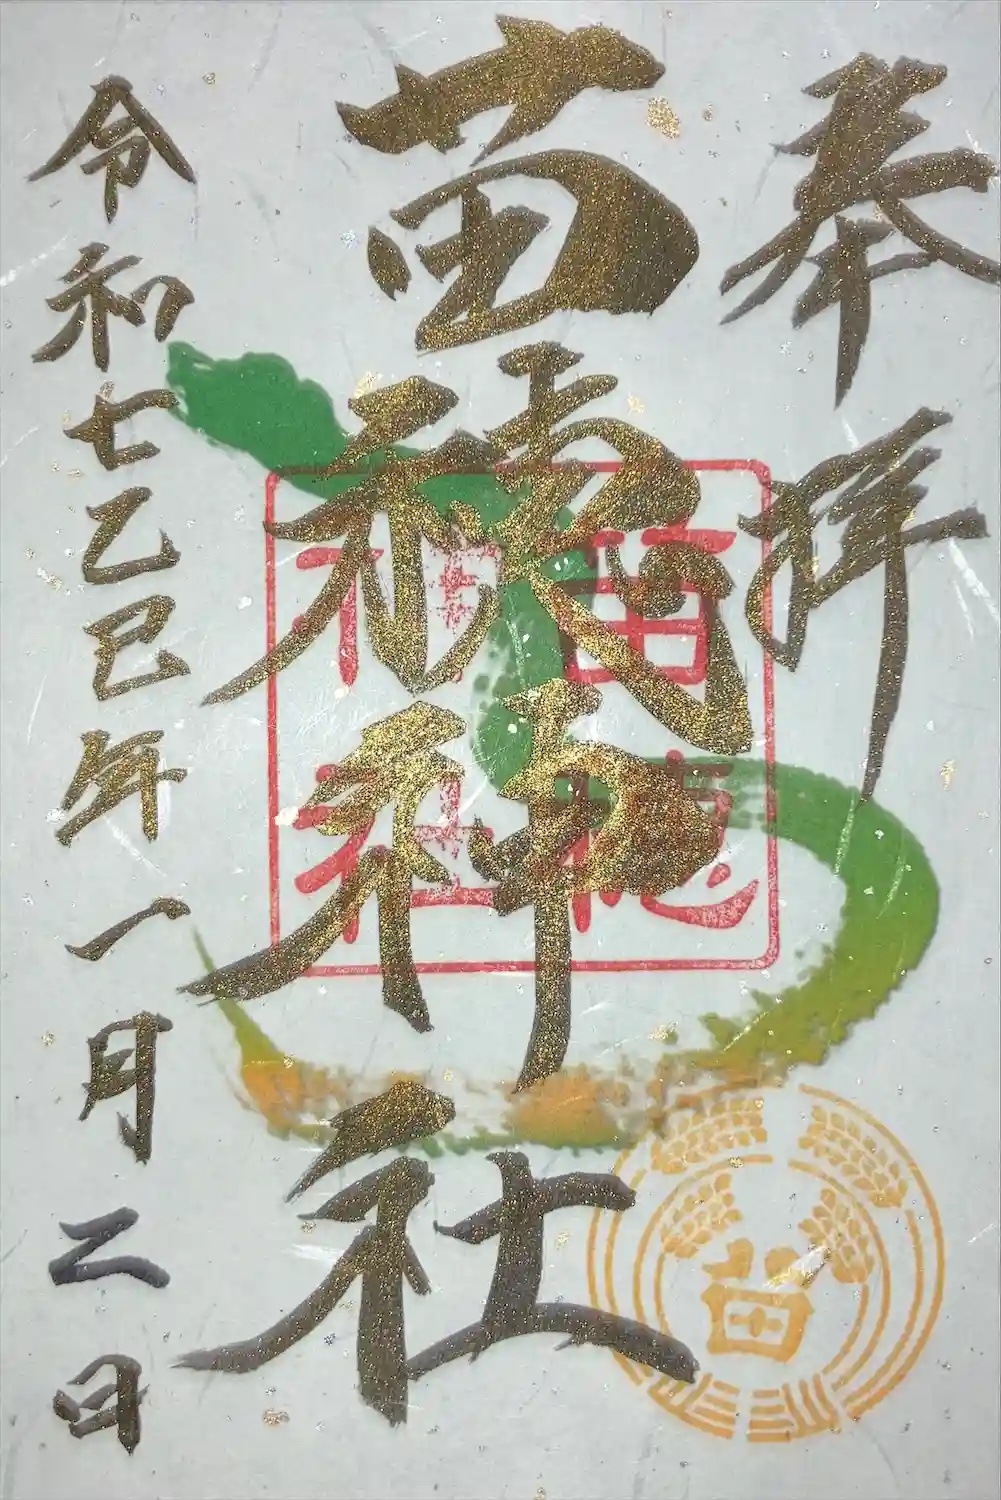 奉拝
苗穂神社
令和七乙巳年一月二日
苗穂
神社
苗